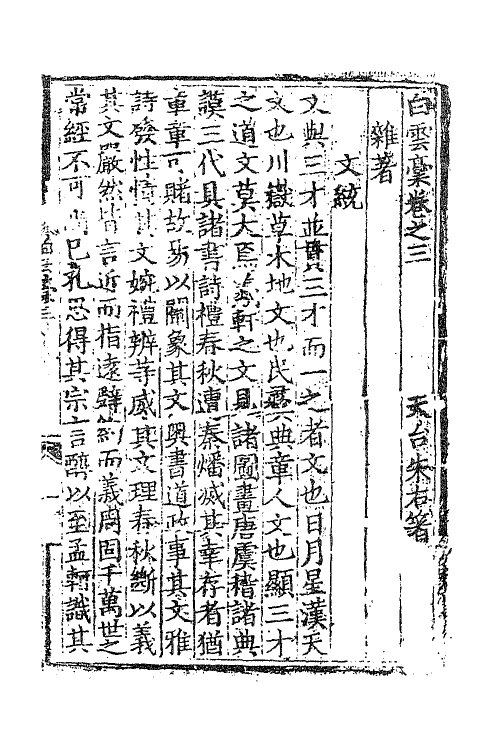 白雲稾卷之三
天台朱右著
雜著
文統
文與三才並貫三才而一之者文也日月星漢天
文也川嶽草木地文也民彞典章人文也顯三才
之道文莫大焉羲軒之文見諸圖畫唐虞稽諸典
謨三代具諸書詩禮春秋遭秦燔滅其幸存者猶
章章可睹故易以闡象其文奧書道政事其文雅
詩發性情其文婉禮辨等威其文理春秋斷以義
其文嚴然皆言近而指遠辭約而義周固千萬世之
常經不可尚已孔思得其宗言醇以至孟軻識其